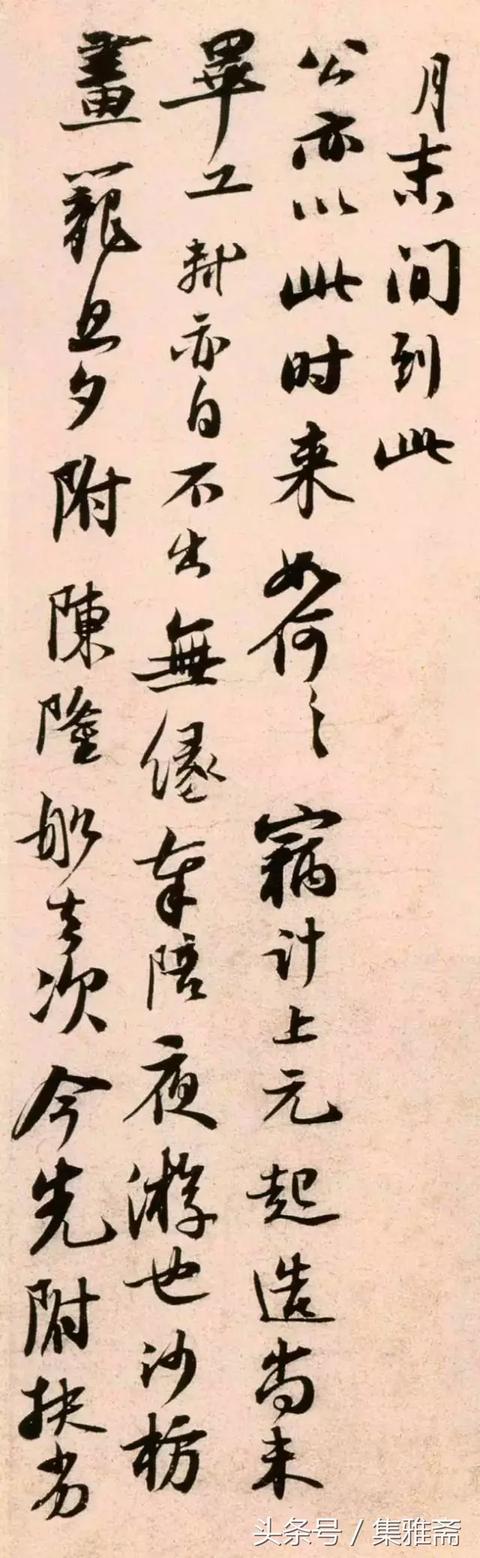 月末間到此
公亦以此时来如何〻竊計上元起造尚未
畢工軾亦自不出無緣奉陪夜游也沙枋
畫籠旦夕附陳隆船去次今先附扶劣
头条号 / 集雅斋